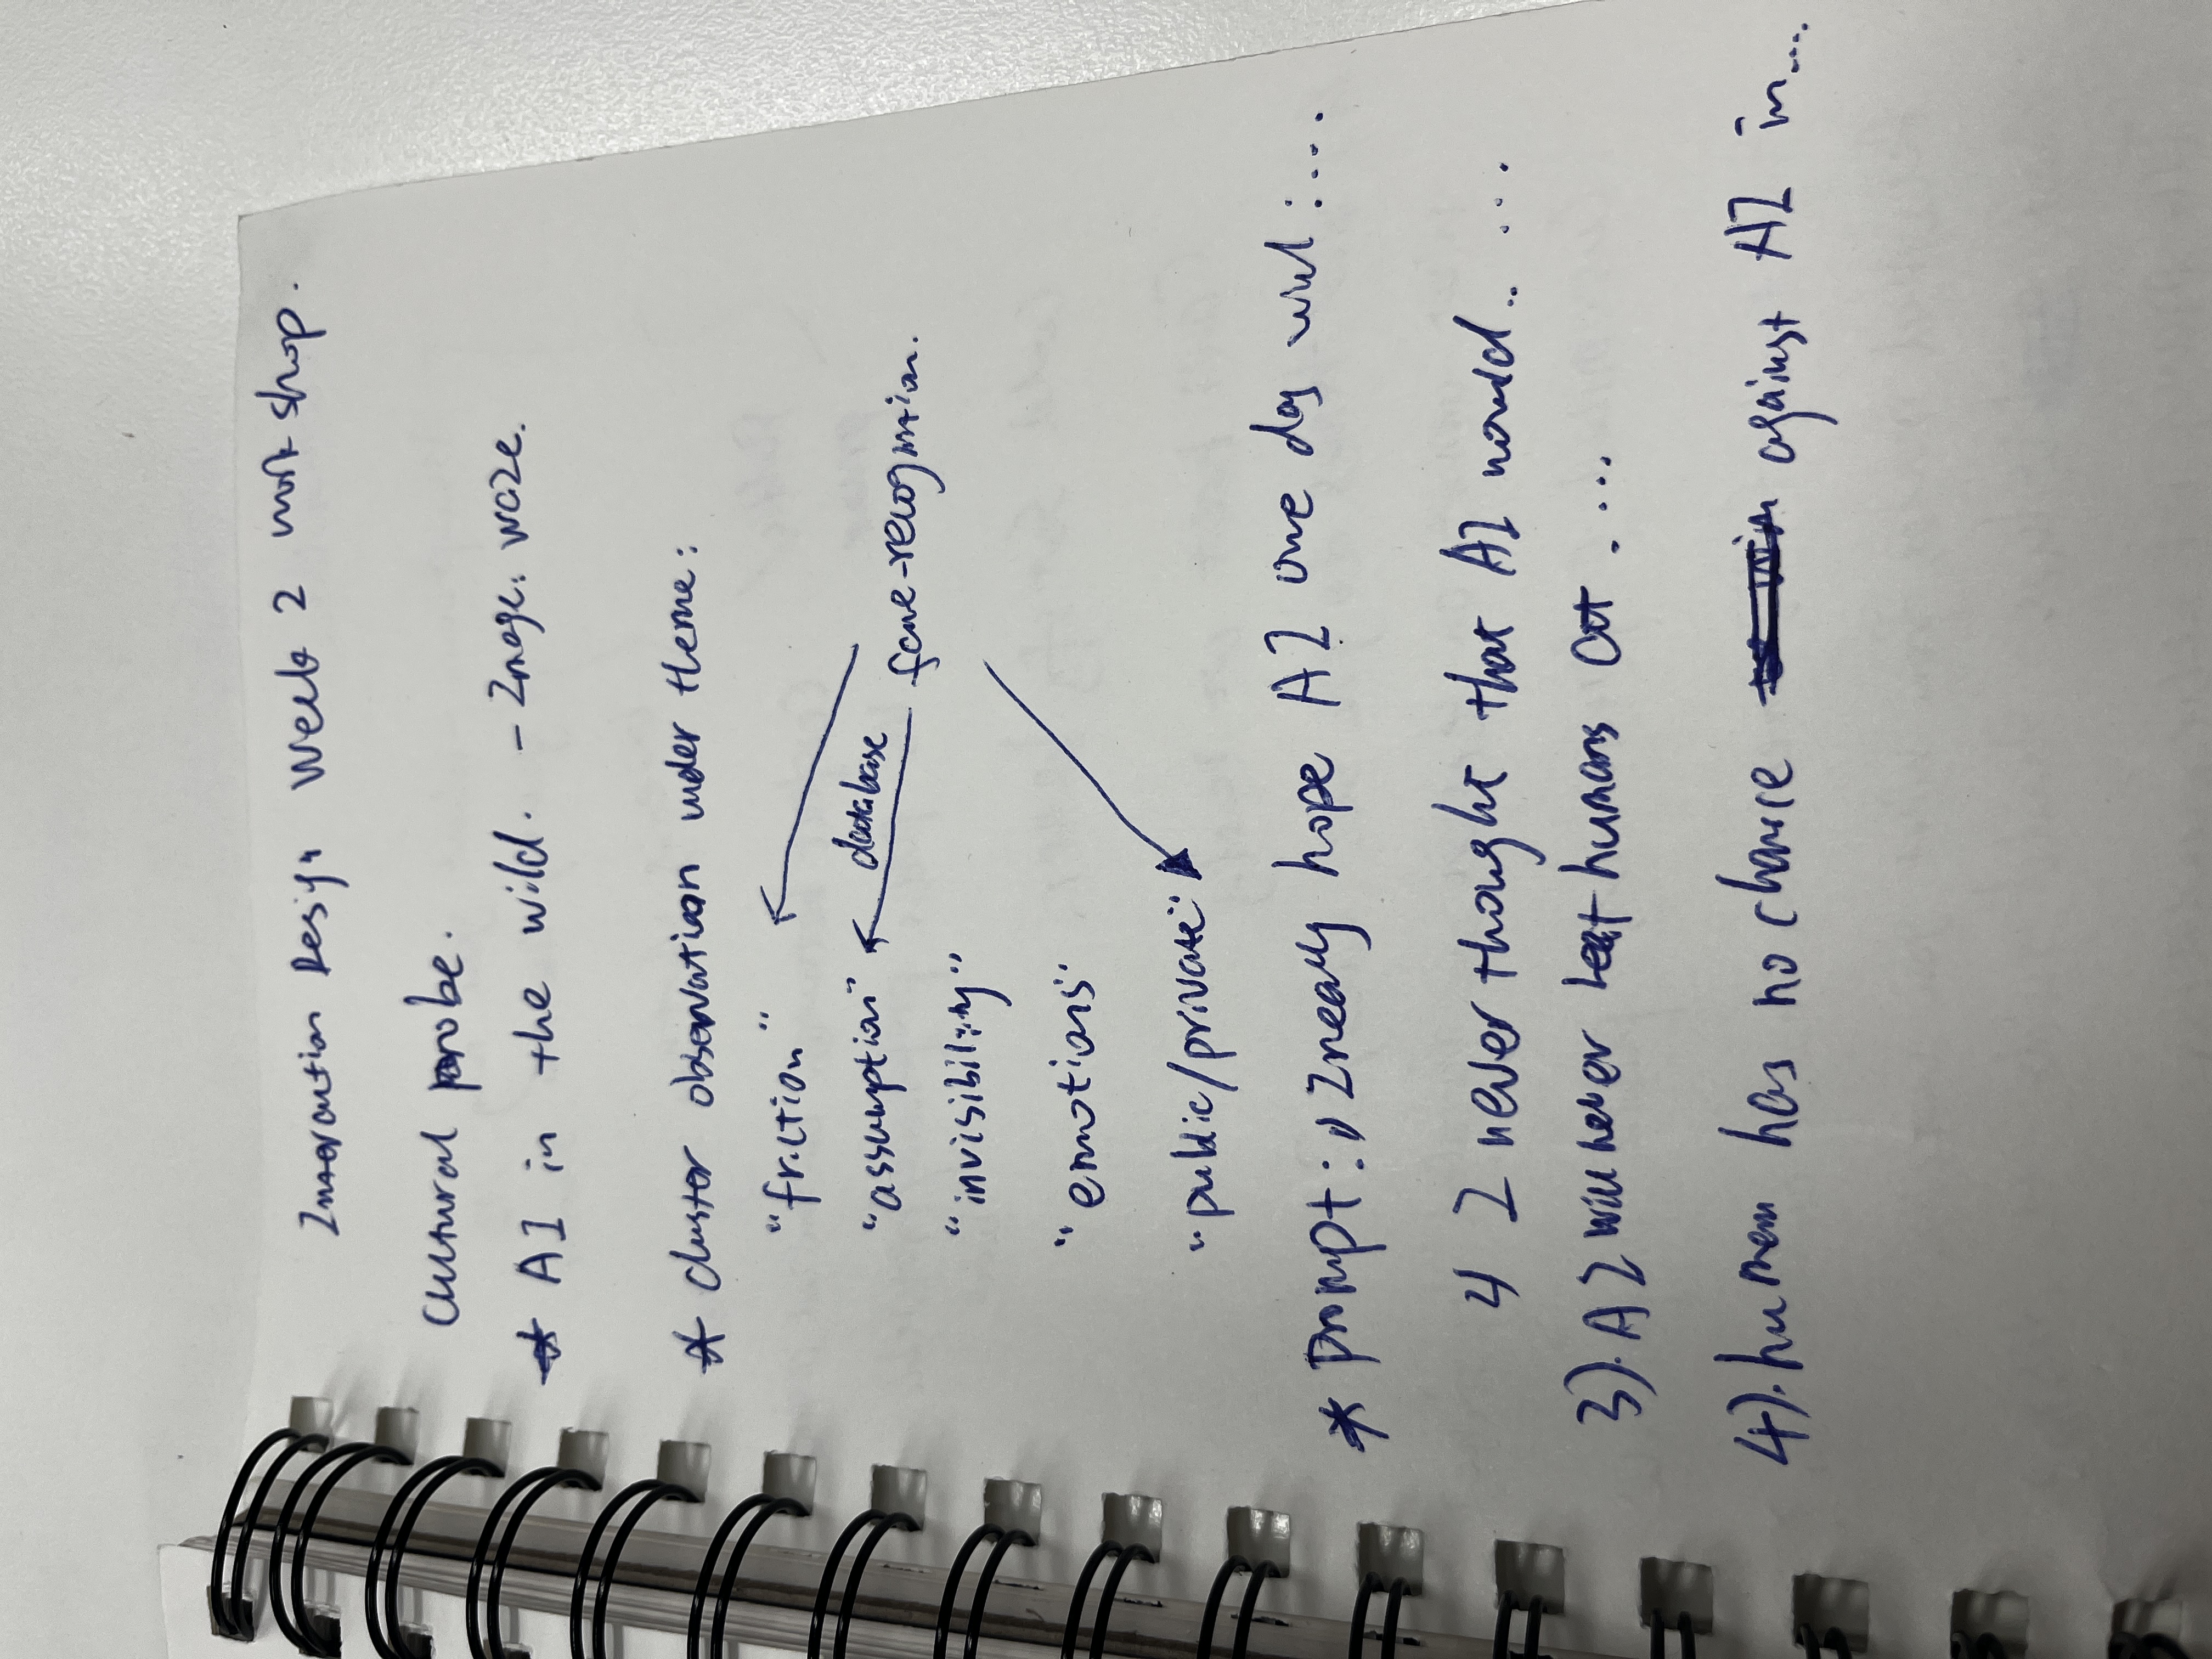 Interaction Design Week 2 workshop.
Cultural probe.
* AI in the wild. - Image: waze.
* cluster observation under theme:
"friction"
"assumption" database
face-recognition.
"invisibility"
"emotions"
"public/private"
* Prompt: 1) I really hope AI one day will: ...
2) I never thought that AI would.. ...
3). AI will never beat humans at . ...
4). human has no chance against AI in....